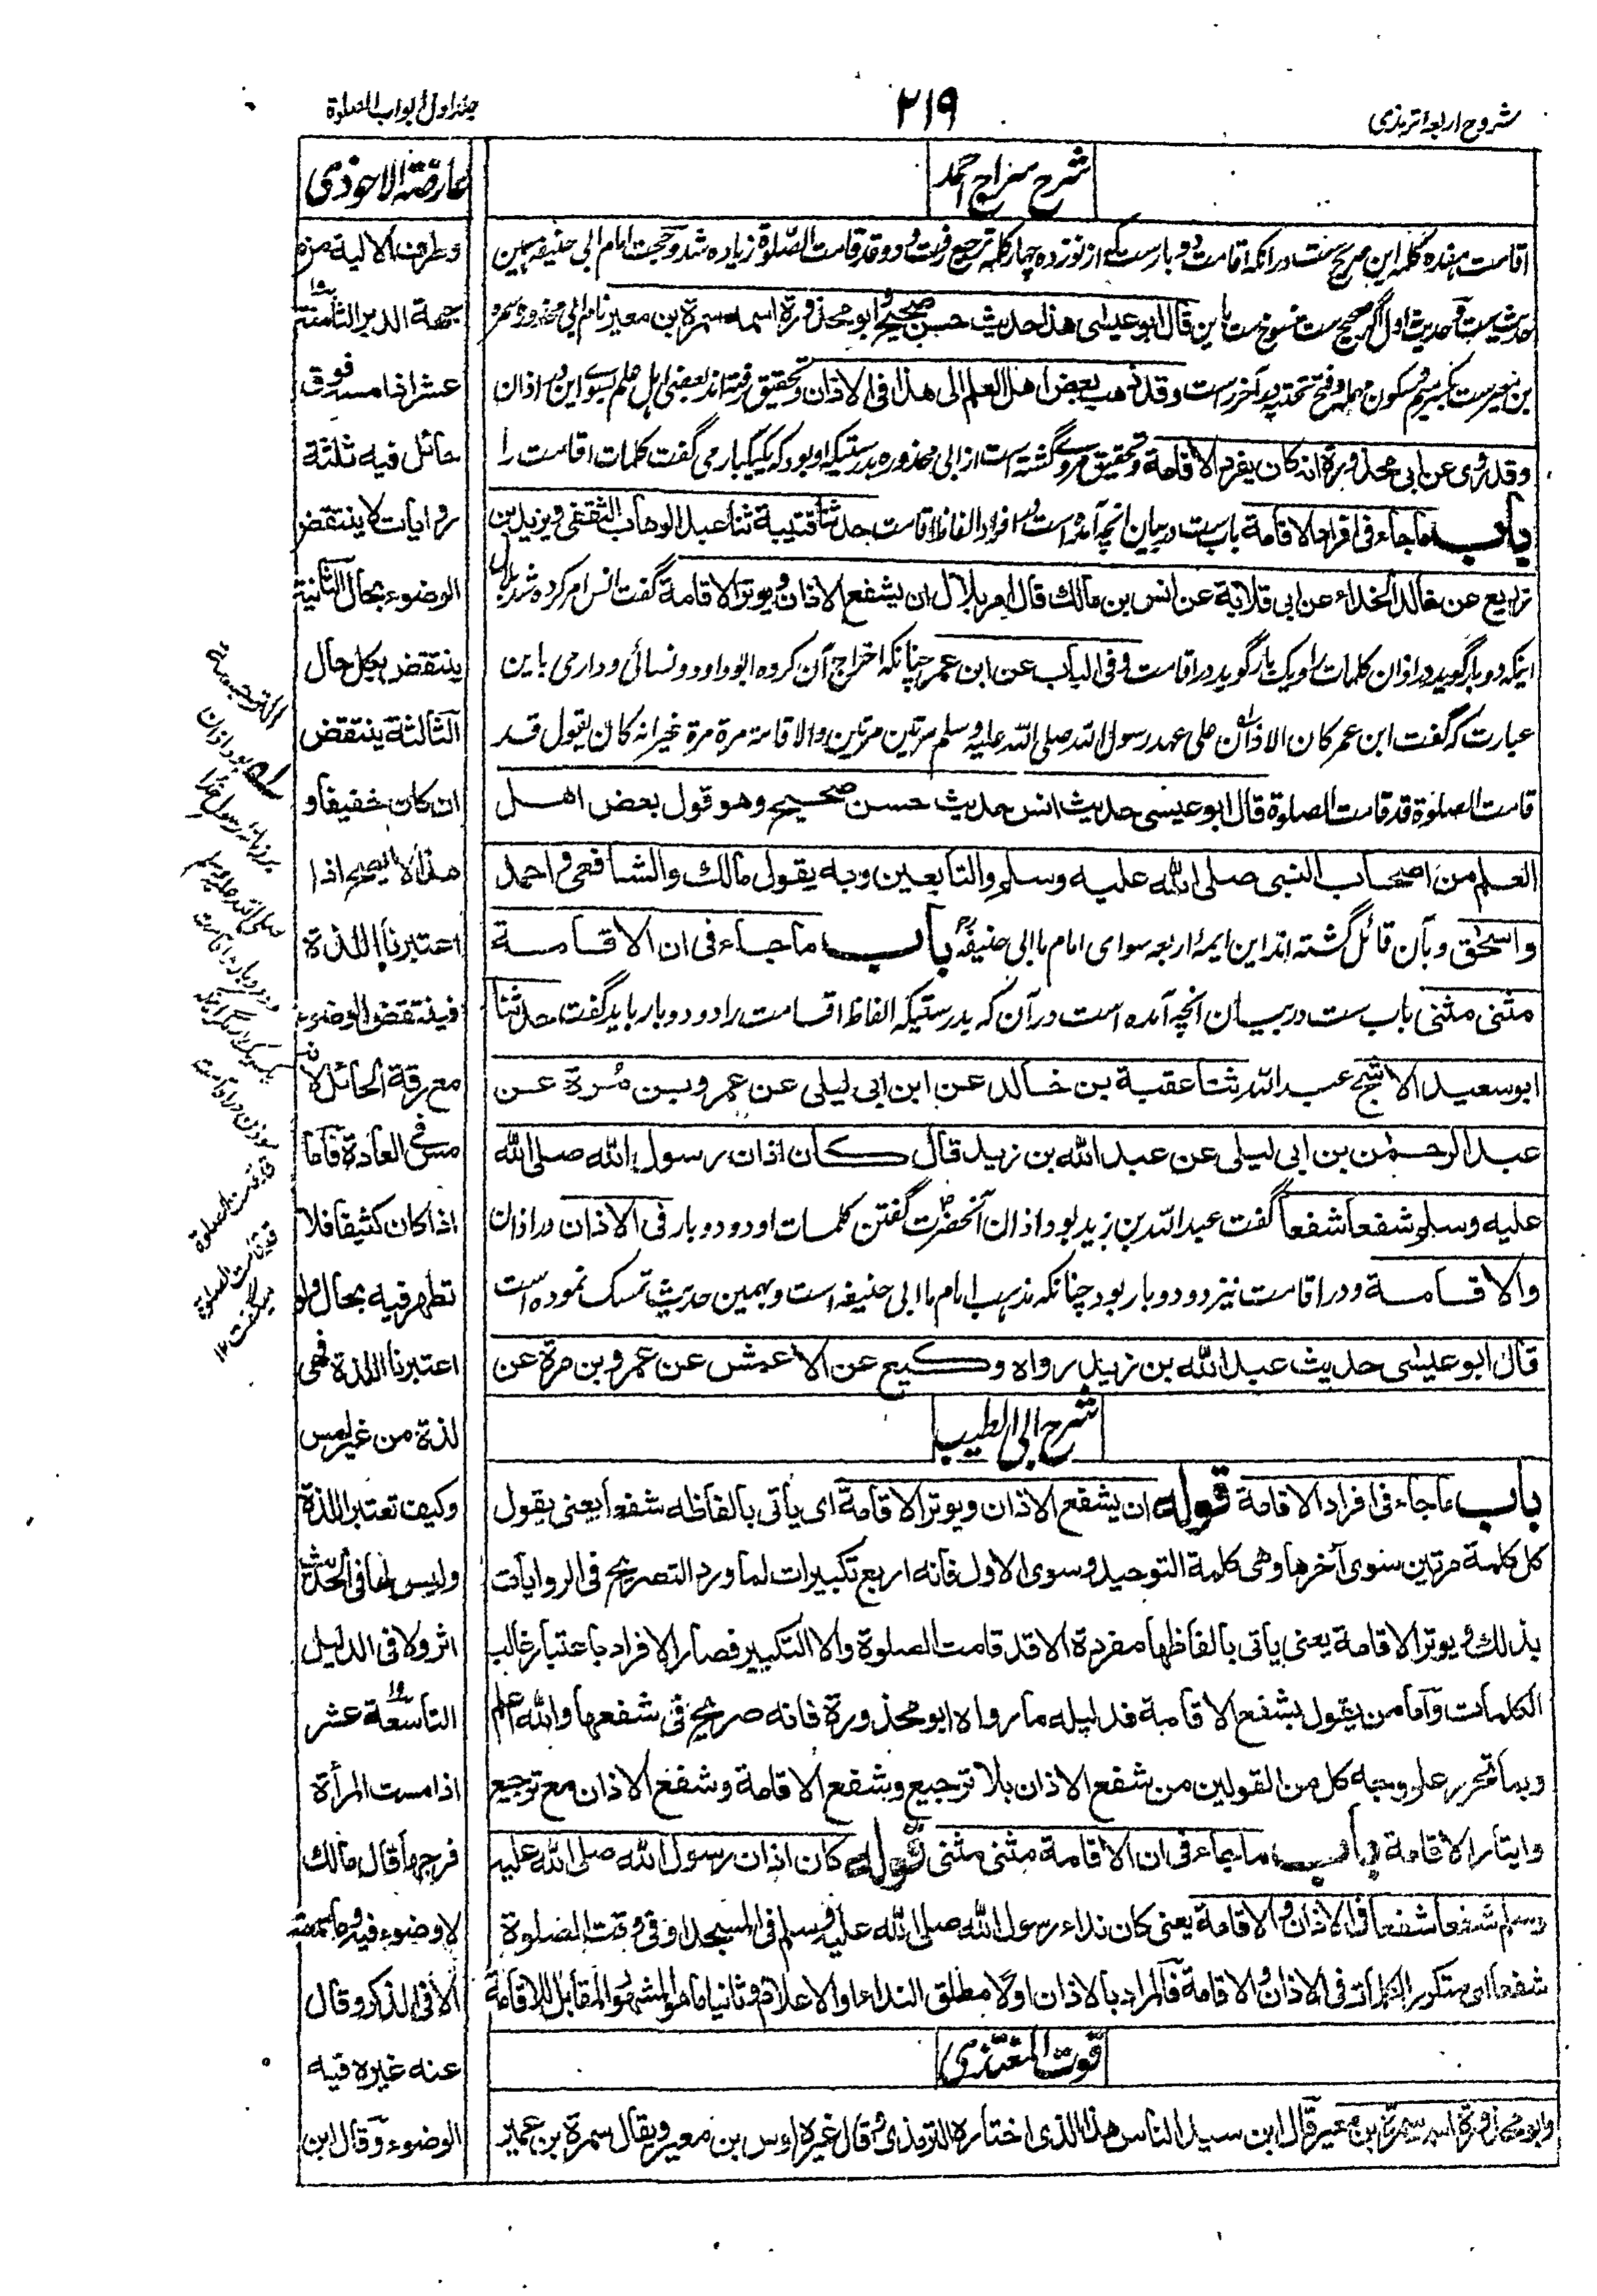 شروح اربعه ترمذی
۲۱۹
جلد اول ابواب الصلوة
شرح سراج احمد
اقامت هفده کلمه این صریح ست در آنکه اقامت دوبار ست که از نوزده چهار کلمه ترجیع رفت و دو قد قامت الصلوة زیاده شد و حجت امام ابی حنیفه همین
حدیث ست و حدیث اول اگر صحیح ست منسوخ ست باین قال ابو عیسی هذا حدیث حسن صحیح و ابو محذورة اسمه سمرة بن معیر نام ابی محذوره سمره
بن معیر ست بکسر میم و سکون مهمله و فتح تحتیه در آخر راست وقد ذهب بعض اهل العلم الی هذا فی الاذان و تحقیق رفته اند بعضی اهل علم بسوے این در اذان
وقد روی عن ابی محذورة انه کان یفرد الاقامة و تحقیق مروے گشته است از ابی محذوره بدرستیکه او بود که یک یکبار می گفت کلمات اقامت را
باب ماجاء فی افراد الاقامة باب ست در بیان آنچه آمده است در افراد الفاظ اقامت حدثنا قتیبة ثنا عبد الوهاب الثقفی و یزید بن
زریع عن خالد الحذاء عن ابی قلابة عن انس بن مالک قال امر بلال ان یشفع الاذان و یوتر الاقامة گفت انس امر کرده شد بلال
اینکه دوبار گوید در اذان کلمات را و یک بار گوید در اقامت وفی الباب عن ابن عمر چنانکه اخراج آن کرده ابو داود و نسائی و دارمی باین
عبارت که گفت ابن عمر کان الاذان علی عهد رسول الله صلی الله علیه وسلم مرتین مرتین والاقامة مرة مرة غیر انه کان یقول قد
قامت الصلوة قد قامت الصلوة قال ابو عیسی حدیث انس حدیث حسن صحیح وهو قول بعض اهل
العلم من اصحاب النبی صلی الله علیه وسلم والتابعین وبه یقول مالک والشافعی و احمد
واسحق و بآن قائل گشته اند این ایمهٔ اربعه سوای امام ما ابی حنیفه باب ماجاء فی ان الاقامة
مثنی مثنی باب ست در بیان آنچه آمده است در آن که بدرستیکه الفاظ اقامت را دو دو بار باید گفت حدثنا
ابو سعید الاشج عبد الله ثنا عقبة بن خالد عن ابن ابی لیلی عن عمرو بن مُرة عن
عبد الرحمن بن ابی لیلی عن عبد الله بن زید قال کان اذان رسول الله صلی الله
علیه وسلم شفعا شفعا گفت عبد الله بن زید بود اذان آنحضرت گفتن کلمات او دو دو بار فی الاذان در اذان
والاقامة و در اقامت نیز دو دو بار بود چنانکه مذهب امام ما ابی حنیفه است و بهمین حدیث تمسک نموده است
قال ابو عیسی حدیث عبد الله بن زید رواه وکیع عن الاعمش عن عمرو بن مرة عن
شرح ابی الطیب
باب ماجاء فی افراد الاقامة قوله ان یشفع الاذان ویوتر الاقامة ای یأتی بالفاظه شفعا یعنی یقول
کل کلمة مرتین سوی آخرها وهی کلمة التوحید وسوی الاول فانه اربع تکبیرات لما ورد التصریح فی الروایات
بذلک و یوتر الاقامة یعنی یأتی بالفاظها مفردة الا قد قامت الصلوة والا التکبیر فصار الافراد باعتبار غالب
الکلمات واما من یقول بشفع الاقامة فدلیله ما رواه ابو محذورة فانه صریح فی شفعها والله اعلم
وبما تحرر علم وجه کل من القولین من شفع الاذان بلا ترجیع وبشفع الاقامة وشفع الاذان مع ترجیع
وایتار الاقامة باب ماجاء فی ان الاقامة مثنی مثنی قوله کان اذان رسول الله صلی الله علیه
وسلم شفعا شفعا فی الاذان والاقامة یعنی کان نداء رسول الله صلی الله علیه وسلم فی المسجد او فی وقت الصلوة
شفعا ای متکرر الکلمات فی الاذان والاقامة فالمراد بالاذان اولا مطلق النداء والاعلام وثانیا ما هو المشهور المقابل للاقامة
قوت المغتذی
وابو محذورة اسمه سمرة بن معیر قال ابن سید الناس هذا الذی اختاره الترمذی وقال غیره اوس بن معیر ویقال سمرة بن عمیر
عارضة الاحوذی
وطرف الالیة من
جهة الدبر الثامنة
عشر اذا مس فوق
حائل فیه ثلثة
روایات لا ینتقض
الوضوء بحال الثانیة
ینتقض بکل حال
الثالثة ینتقض
ان کان خفیفا و
هذا لا یصح اذا
اعتبرنا اللذة
فینتقض الوضوء
مع رقة الحائل لانه
مس فی العادة فاما
اذا کان کثیفا فلا
تظهر فیه بحال ولو
اعتبرنا اللذة فهی
لذة من غیر لمس
وکیف تعتبر اللذة
ولیس لها فی الحدیث
اثر ولا فی الدلیل
التاسعة عشر
اذا مست المرأة
فرجها قال مالک
لا وضوء فیه وما سمعته
الا فی الذکر وقال
عنه غیره فیه
الوضوء وقال ابن
بود اذان
صلی الله علیه وسلم
قد قامت الصلوة
قد قامت الصلوة
میگفت ۱۲